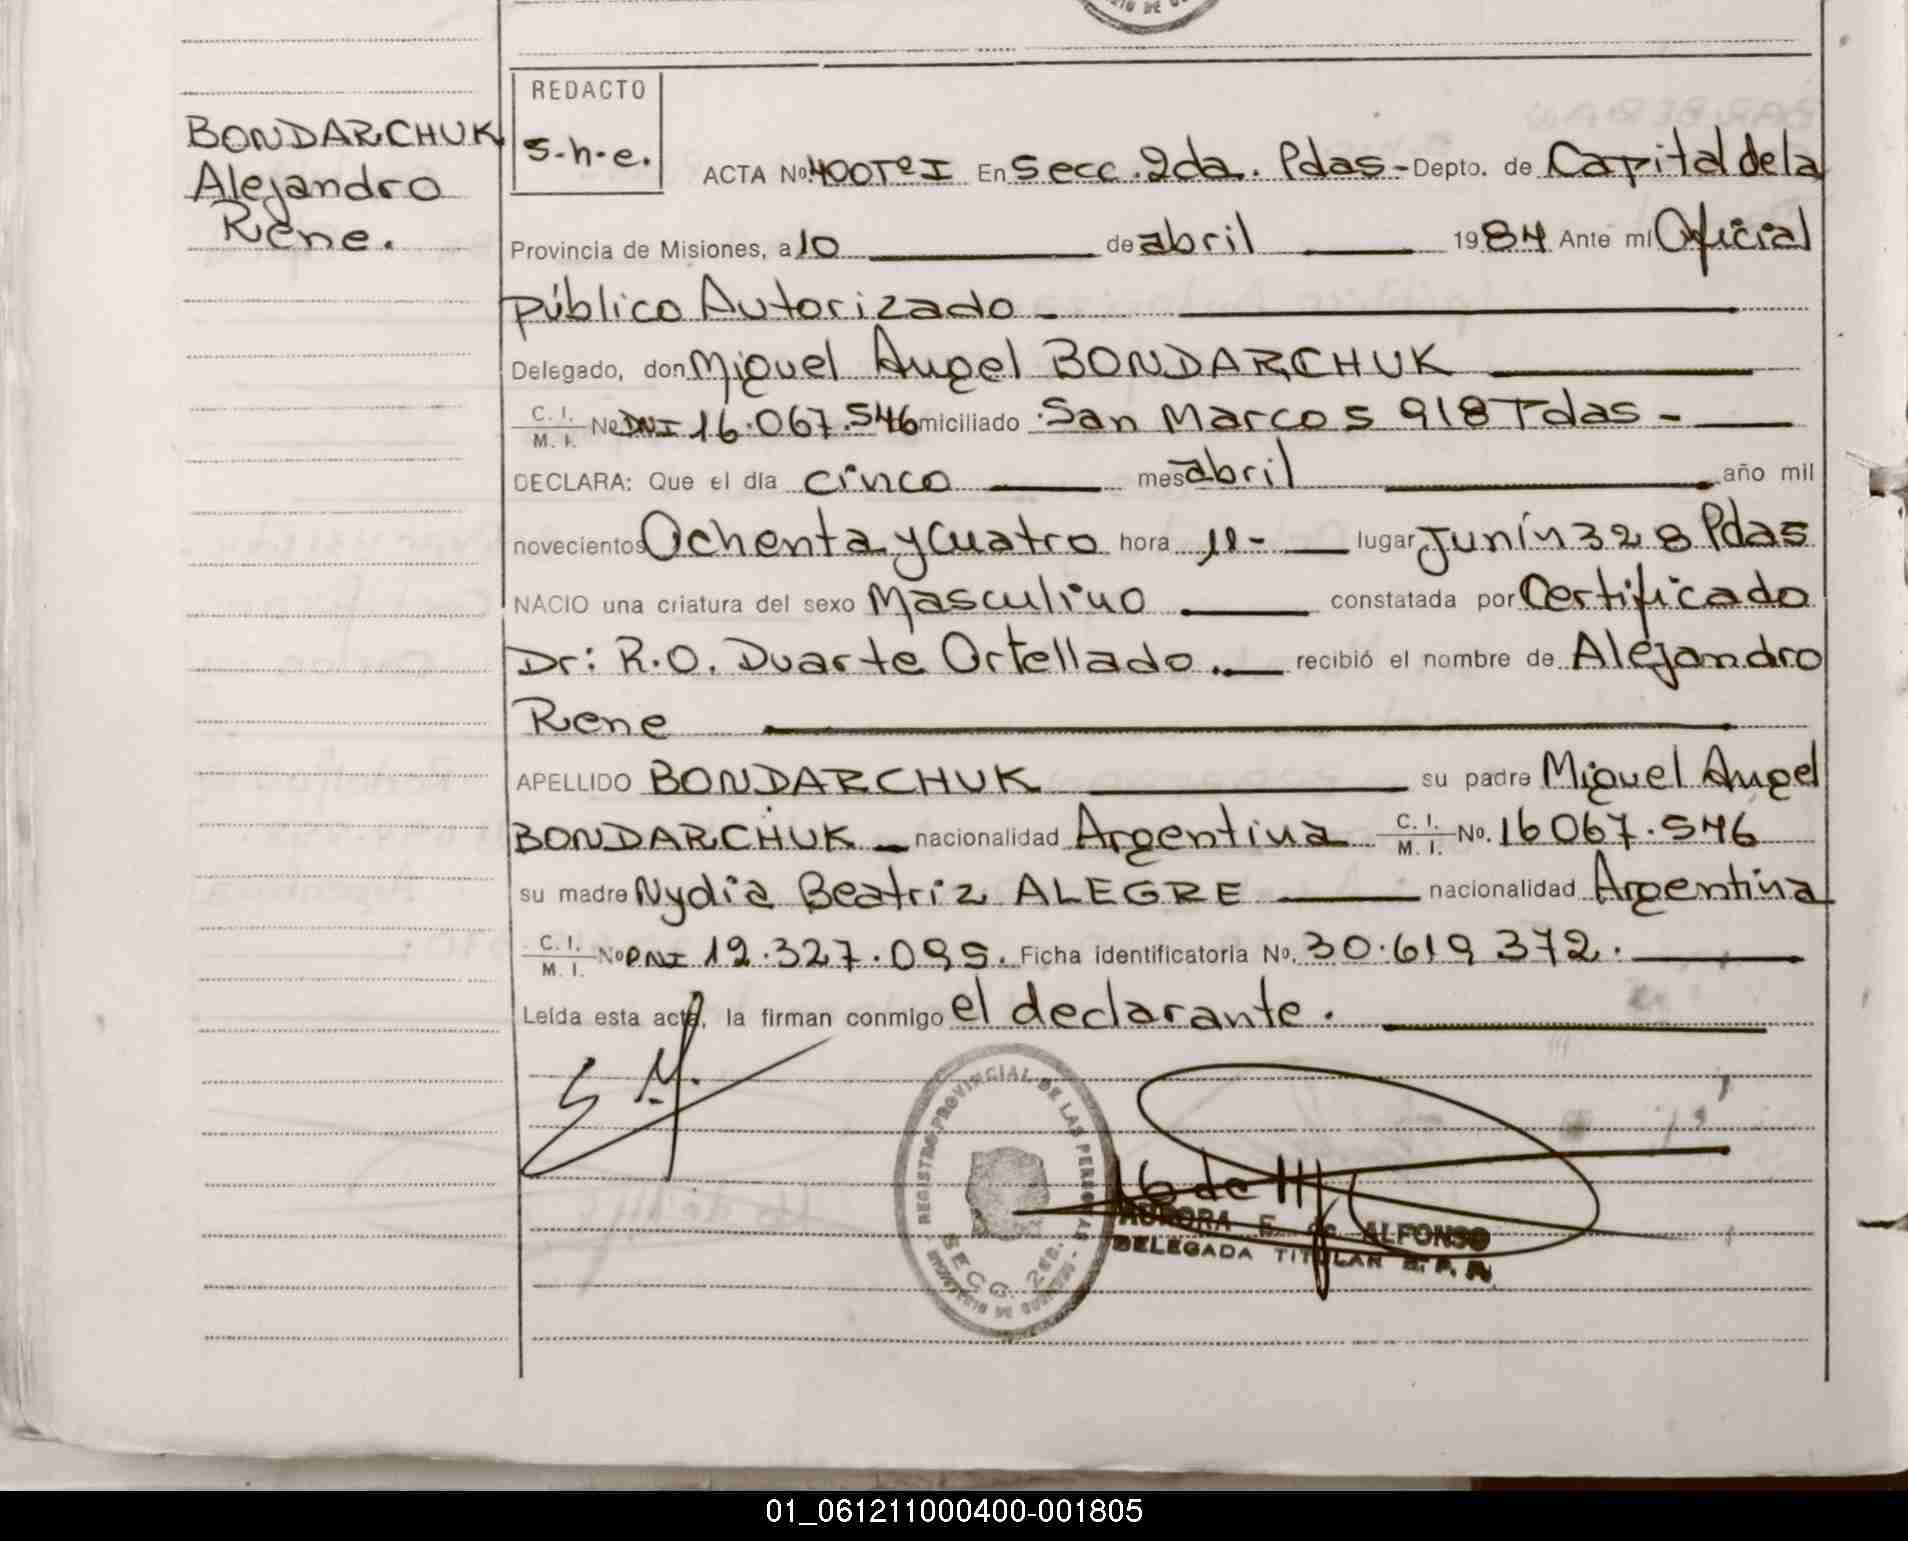 BONDARCHUK
Alejandro
Rene.
REDACTO
s-h-e.
ACTA No. 400 Tº I En Secc. 2da. Pdas - Depto. de Capital de la
Provincia de Misiones, a 10 de abril 1984 Ante mí Oficial
público Autorizado -
Delegado, don Miguel Angel BONDARCHUK
C. I. / M. I. No DNI 16.067.546 miciliado San Marcos 918 Pdas -
DECLARA: Que el día cinco mes abril año mil
novecientos Ochenta y Cuatro hora 11- lugar Junín 328 Pdas
NACIO una criatura del sexo Masculino constatada por Certificado
Dr: R.O. Duarte Ortellado. recibió el nombre de Alejandro
Rene
APELLIDO BONDARCHUK su padre Miguel Angel
BONDARCHUK nacionalidad Argentina C. I. / M. I. No. 16067.546
su madre Nydia Beatriz ALEGRE nacionalidad Argentina
C. I. / M. I. No DNI 12.327.095. Ficha identificatoria No. 30.619 372.
Leída esta acta, la firman conmigo el declarante.
REGISTRO PROVINCIAL DE LAS PERSONAS
SECC. 2da.
AURORA E. de ALFONSO
DELEGADA TITULAR R. P. P.
01_061211000400-001805